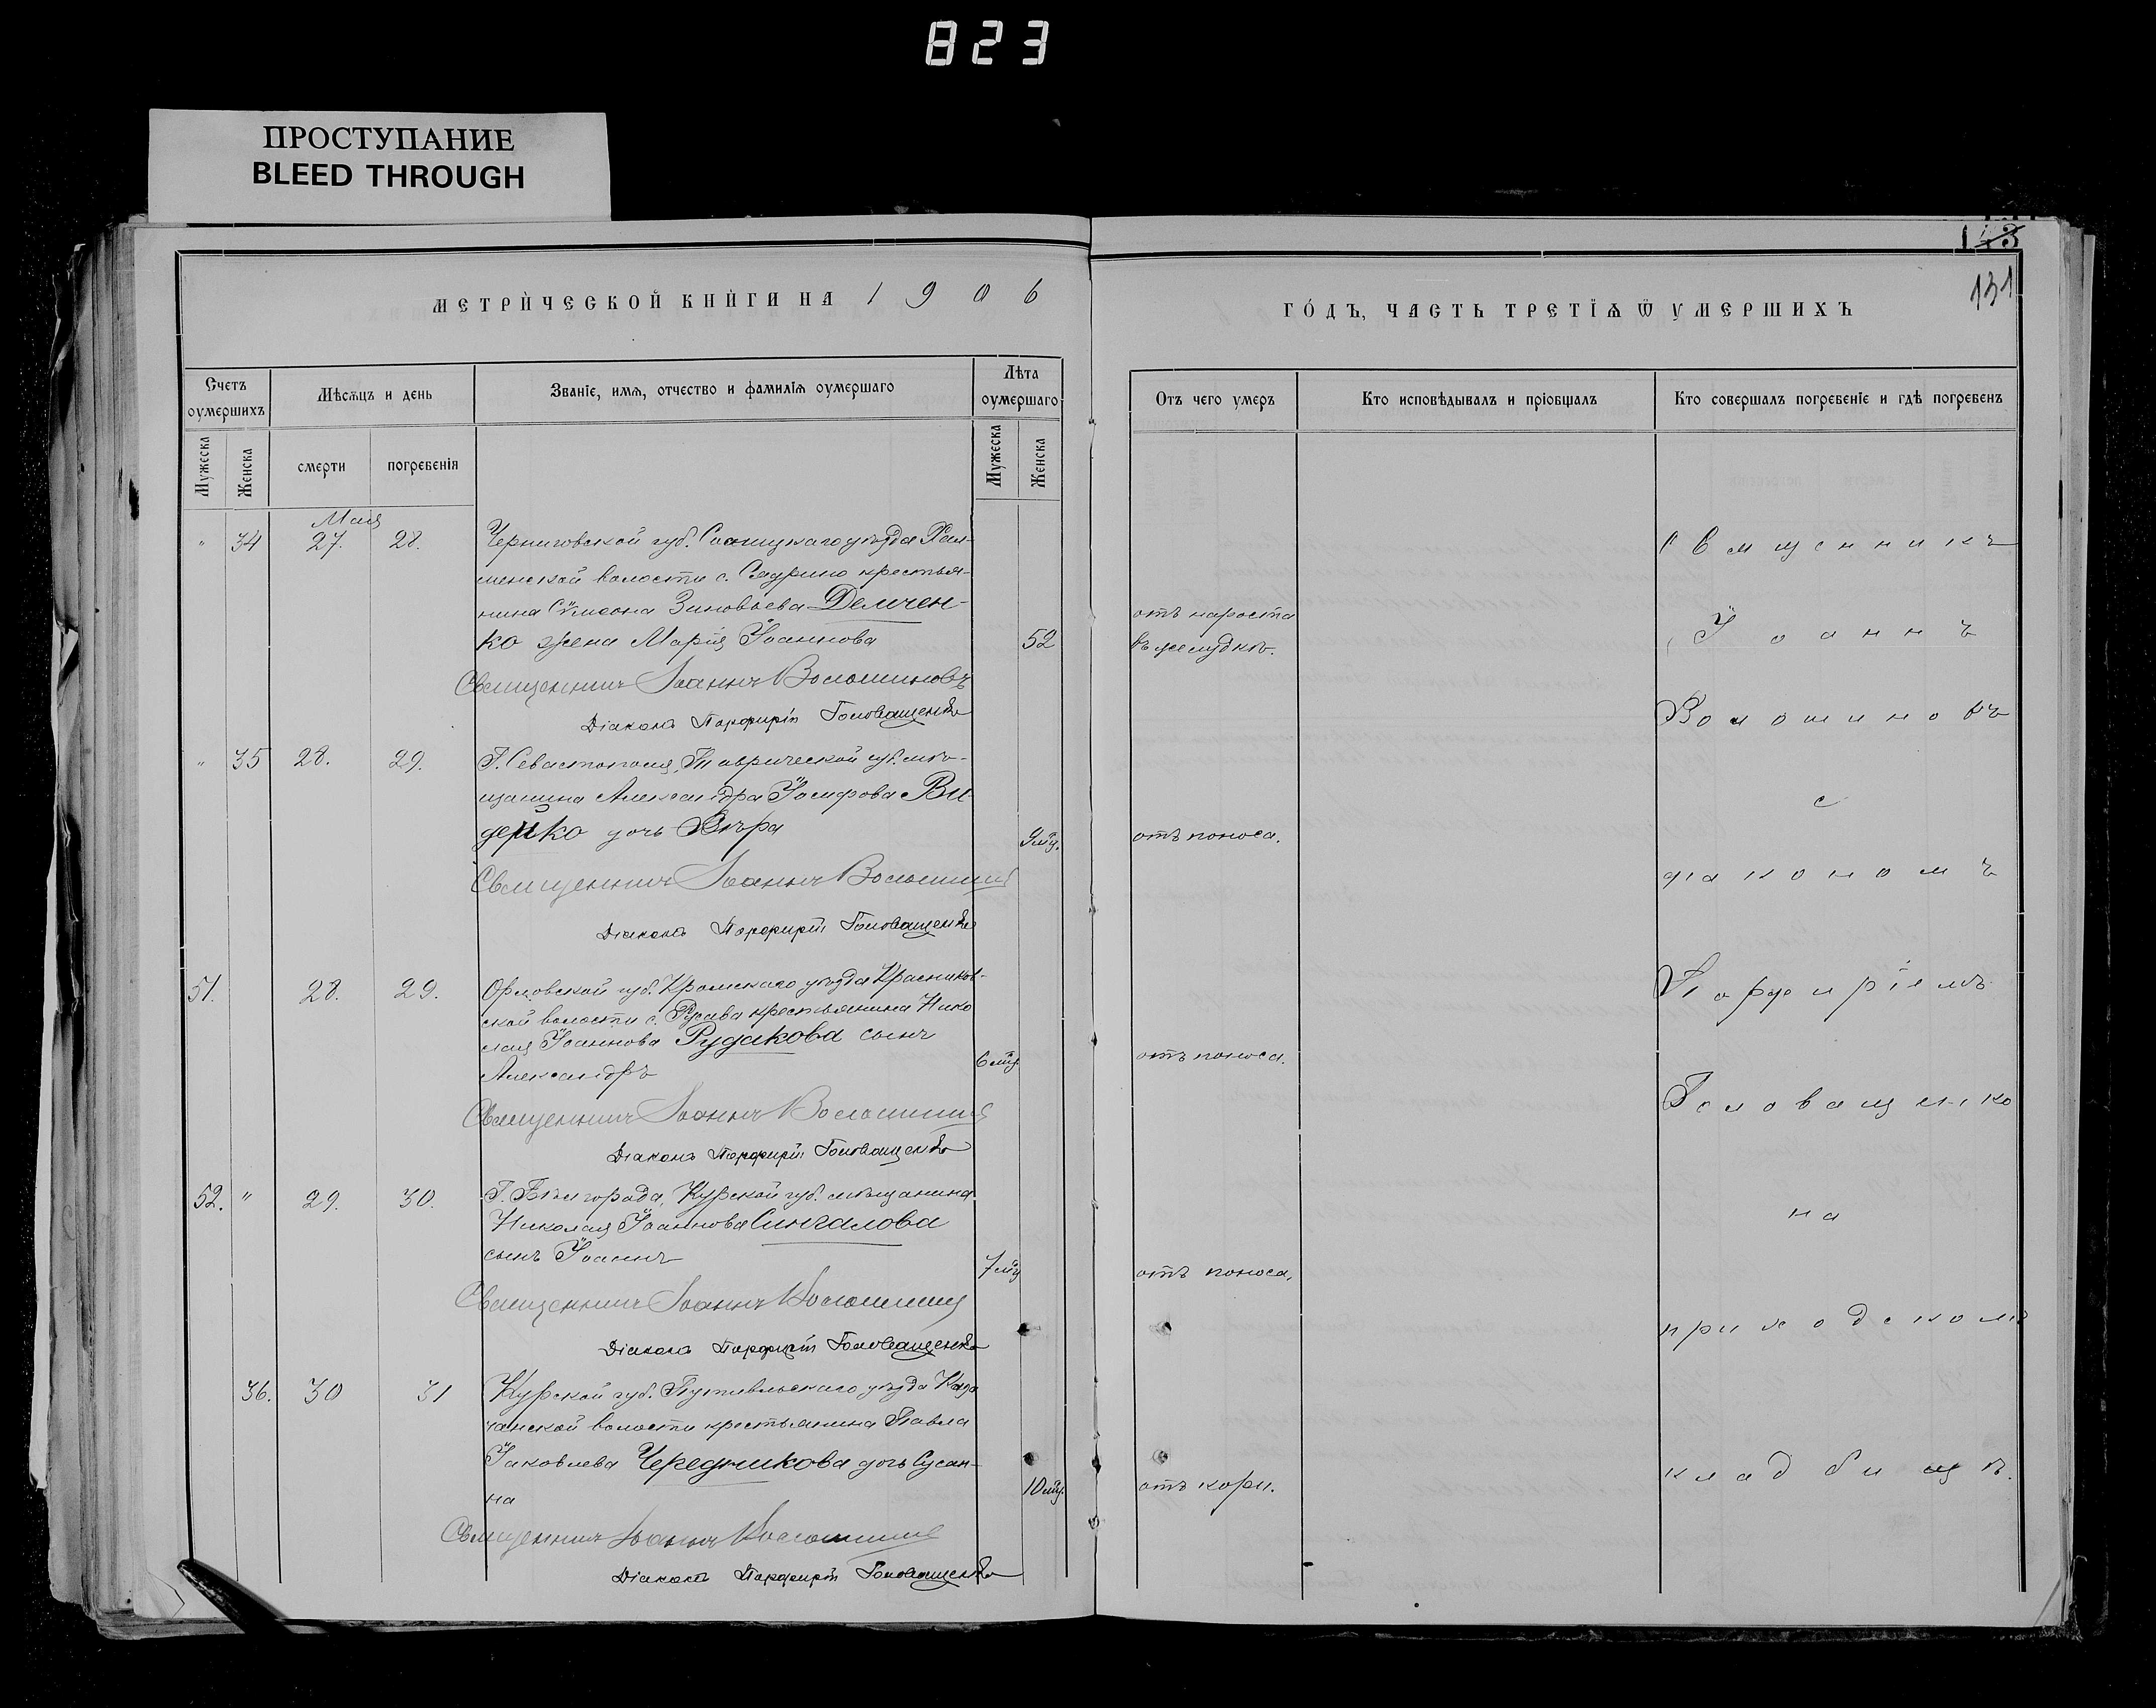 823
ПРОСТУПАНИЕ
BLEED THROUGH
143
131
МЕТРИЧЕСКОЙ КНИГИ НА 1906
ГОДЪ, ЧАСТЬ ТРЕТІЯ Ѿ УМЕРШИХЪ
Счетъ оумершихъ
Мѣсяцъ и день
Званіе, имя, отчество и фамилія оумершаго
Лѣта оумершаго
Отъ чего умеръ
Кто исповѣдывалъ и пріобщалъ
Кто совершалъ погребеніе и гдѣ погребенъ
Мужеска
Женска
смерти
погребенія
Мужеска
Женска
Мая
" 34 27. 28. Черниговской губ. Сосницкаго уѣзда Хол-
менской волости с. Сядрино крестья-
нина Сѵмеона Зиновьева Демчен-
ко жена Марія Іоаннова 52
отъ нароста
въ желудкѣ.
Священникъ Іоаннъ Волошиновъ
Діаконъ Порфирій Головащенко
" 35 28. 29. Г. Севастополя, Таврической губ. мѣ-
щанина Александра Іосифова Ви-
дейко дочь Вѣра 9 мц. отъ поноса.
Священникъ Іоаннъ Волошинов
Діаконъ Порфирій Головащенко
51. 28. 29. Орловской губ. Кромскаго уѣзда Красников-
ской волости с. Русава крестьянина Нико
лая Іоаннова Рудакова сынъ
Александръ 6 мц. отъ поноса.
Священникъ Іоаннъ Волошинов
Діаконъ Порфирій Головащенко
52. " 29. 30. Г. Бѣлгорода, Курской губ. мѣщанина
Николая Іоаннова Сингалова
сынъ Іоаннъ 7 мц отъ поноса,
Священникъ Іоаннъ Волошинов
Діаконъ Порфирій Головащенко
36. 30 31 Курской губ. Путивльскаго уѣзда Каза
чанской волости крестьянина Павла
Іаковлева Чередникова дочь Сусан-
на 10 мц. отъ кори.
Священникъ Іоаннъ Волошинов
Діаконъ Порфирій Головащенко
Священникъ
Іоаннъ
Волошиновъ
с
діакономъ
Порфиріемъ
Головащенко
на
приходскомъ
кладбищѣ.